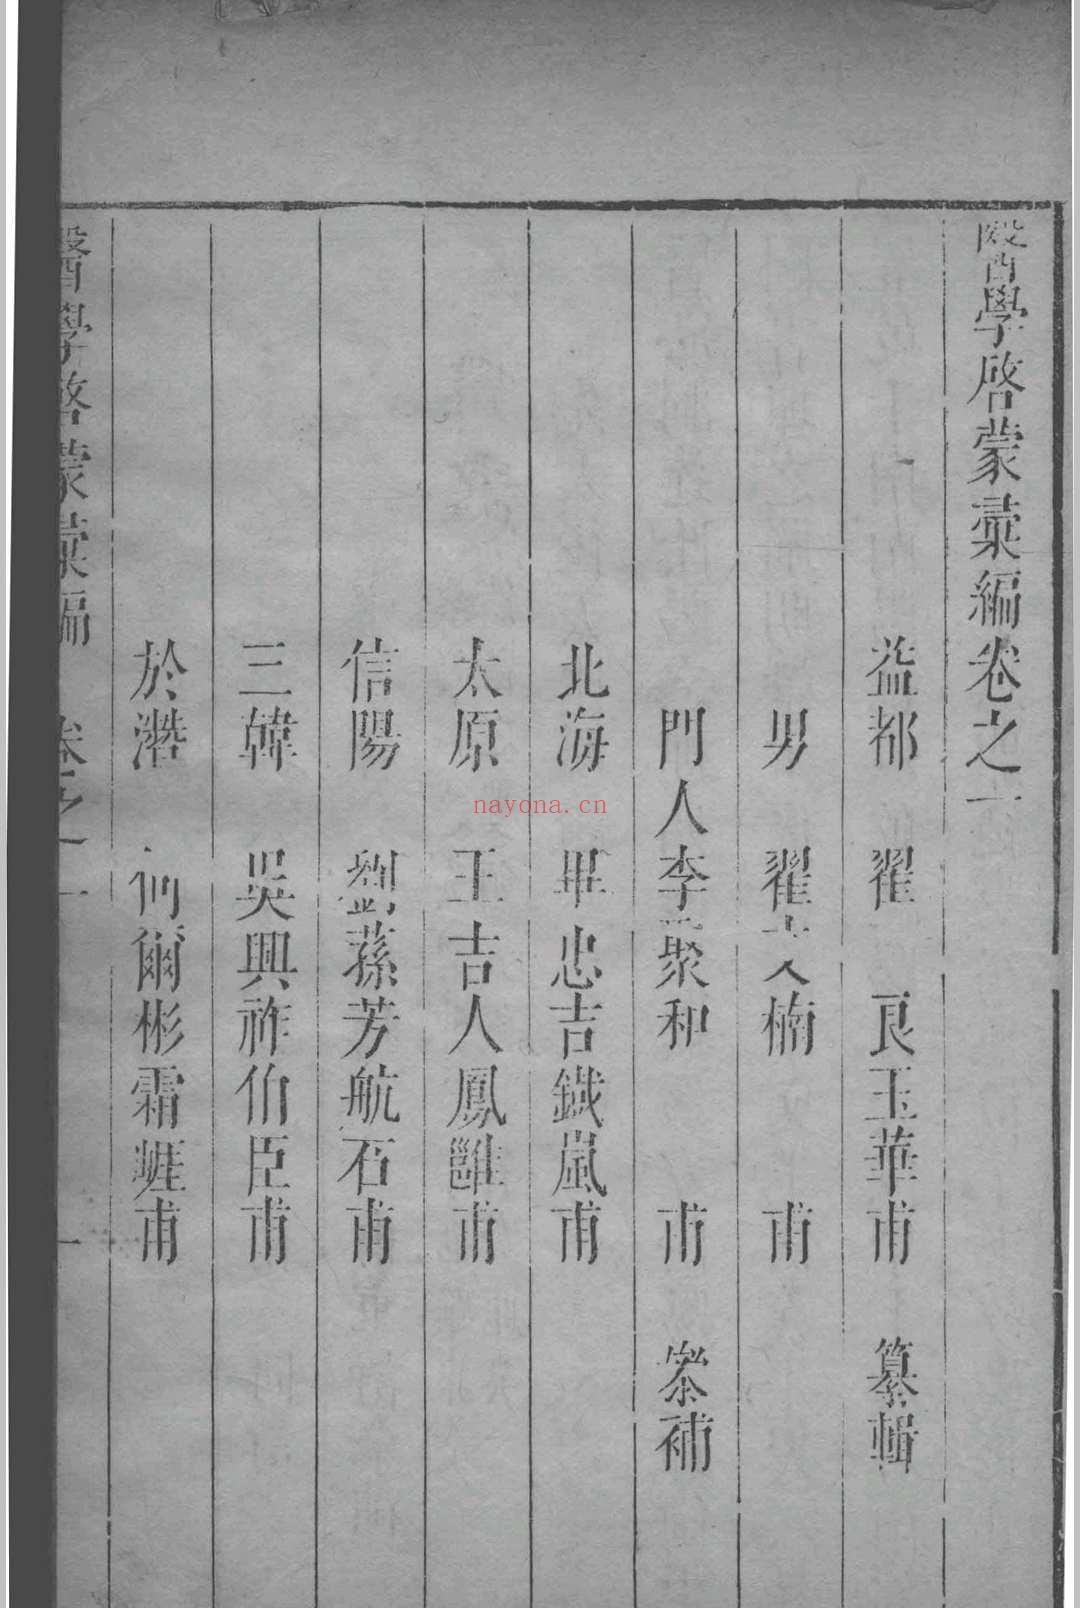 醫學啓蒙彙編卷之一
益都 翟 良玉華甫 纂輯
男 翟文楠 甫
門人李聚和 甫 叅補
北海 畢忠吉鐵嵐甫
太原 王吉人鳳雝甫
信陽 劉蓀芳航石甫
三韓 吳興祚伯臣甫
於潛 何爾彬霜崕甫
醫學啓蒙彙編 卷之一 一
nayona.cn